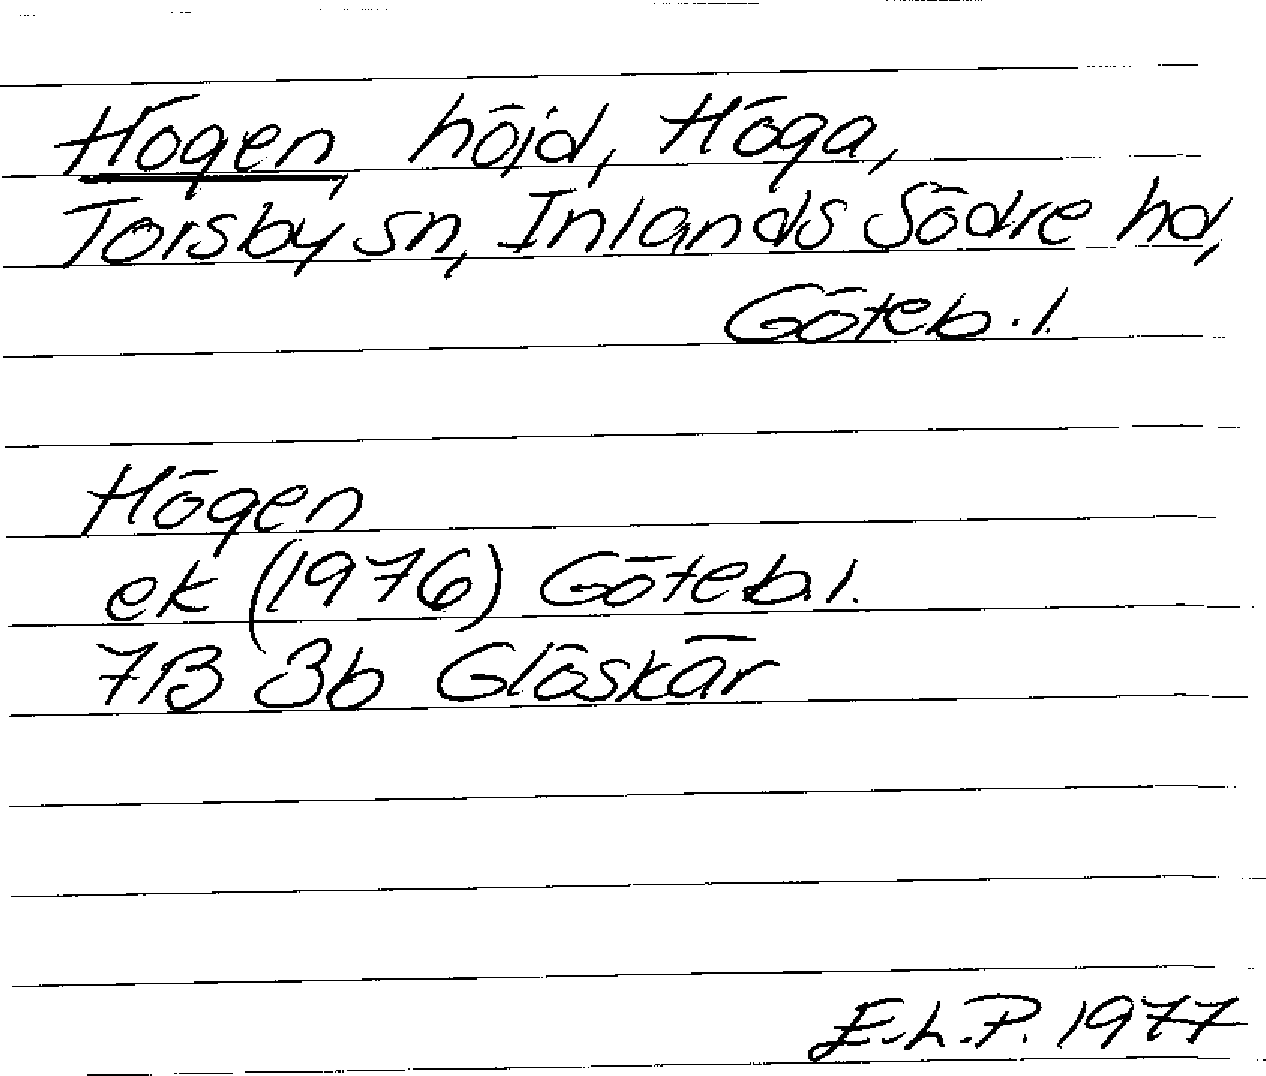 Högen, höjd, Höga,
Torsby sn, Inlands Södre hd,
Göteb. l.
Högen
ek (1976) Göteb. l.
7B 3b Glöskär
E.L.P. 1977